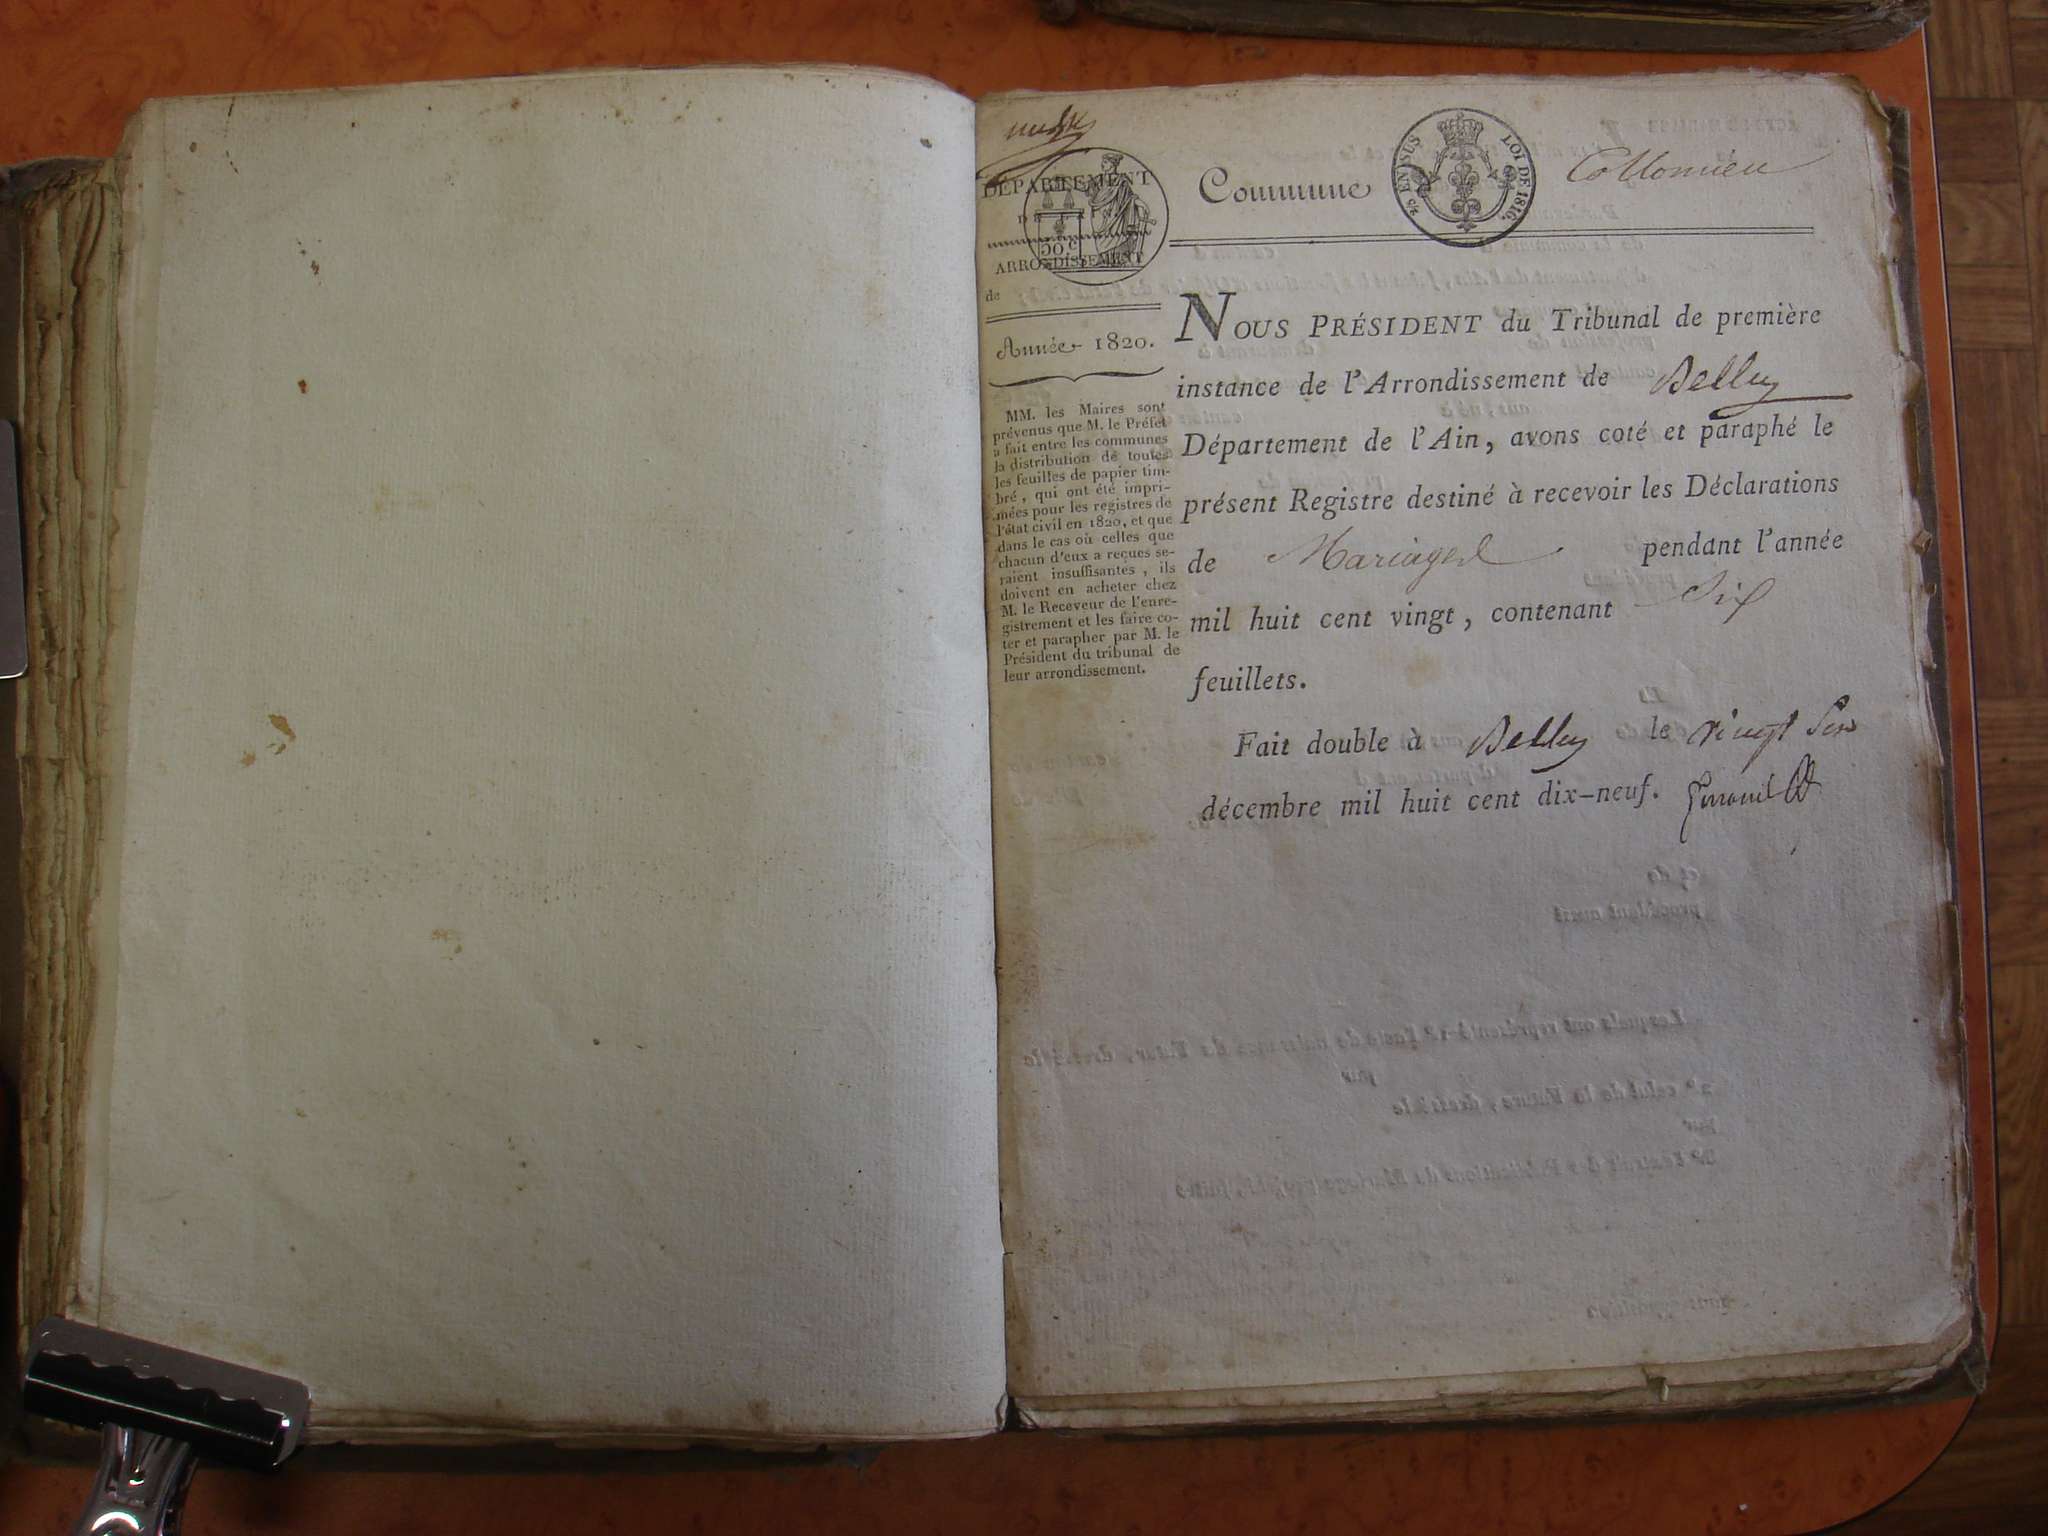 DÉPARTEMENT
DE L'AIN
50 C
ARRONDISSEMENT
de
Année 1820.
MM. les Maires sont
prévenus que M. le Préfet
a fait entre les communes
la distribution de toutes
les feuilles de papier tim-
bré, qui ont été impri-
mées pour les registres de
l'état civil en 1820, et que
dans le cas où celles que
chacun d'eux a reçues se-
raient insuffisantes, ils
doivent en acheter chez
M. le Receveur de l'enre-
gistrement et les faire co-
ter et parapher par M. le
Président du tribunal de
leur arrondissement.
Commune Collomieu
EN SUS LOI DE 1816.
NOUS PRÉSIDENT du Tribunal de première
instance de l'Arrondissement de Belley
Département de l'Ain, avons coté et paraphé le
présent Registre destiné à recevoir les Déclarations
de Mariages pendant l'année
mil huit cent vingt, contenant Six
feuillets.
Fait double à Belley le vingt
décembre mil huit cent dix-neuf.